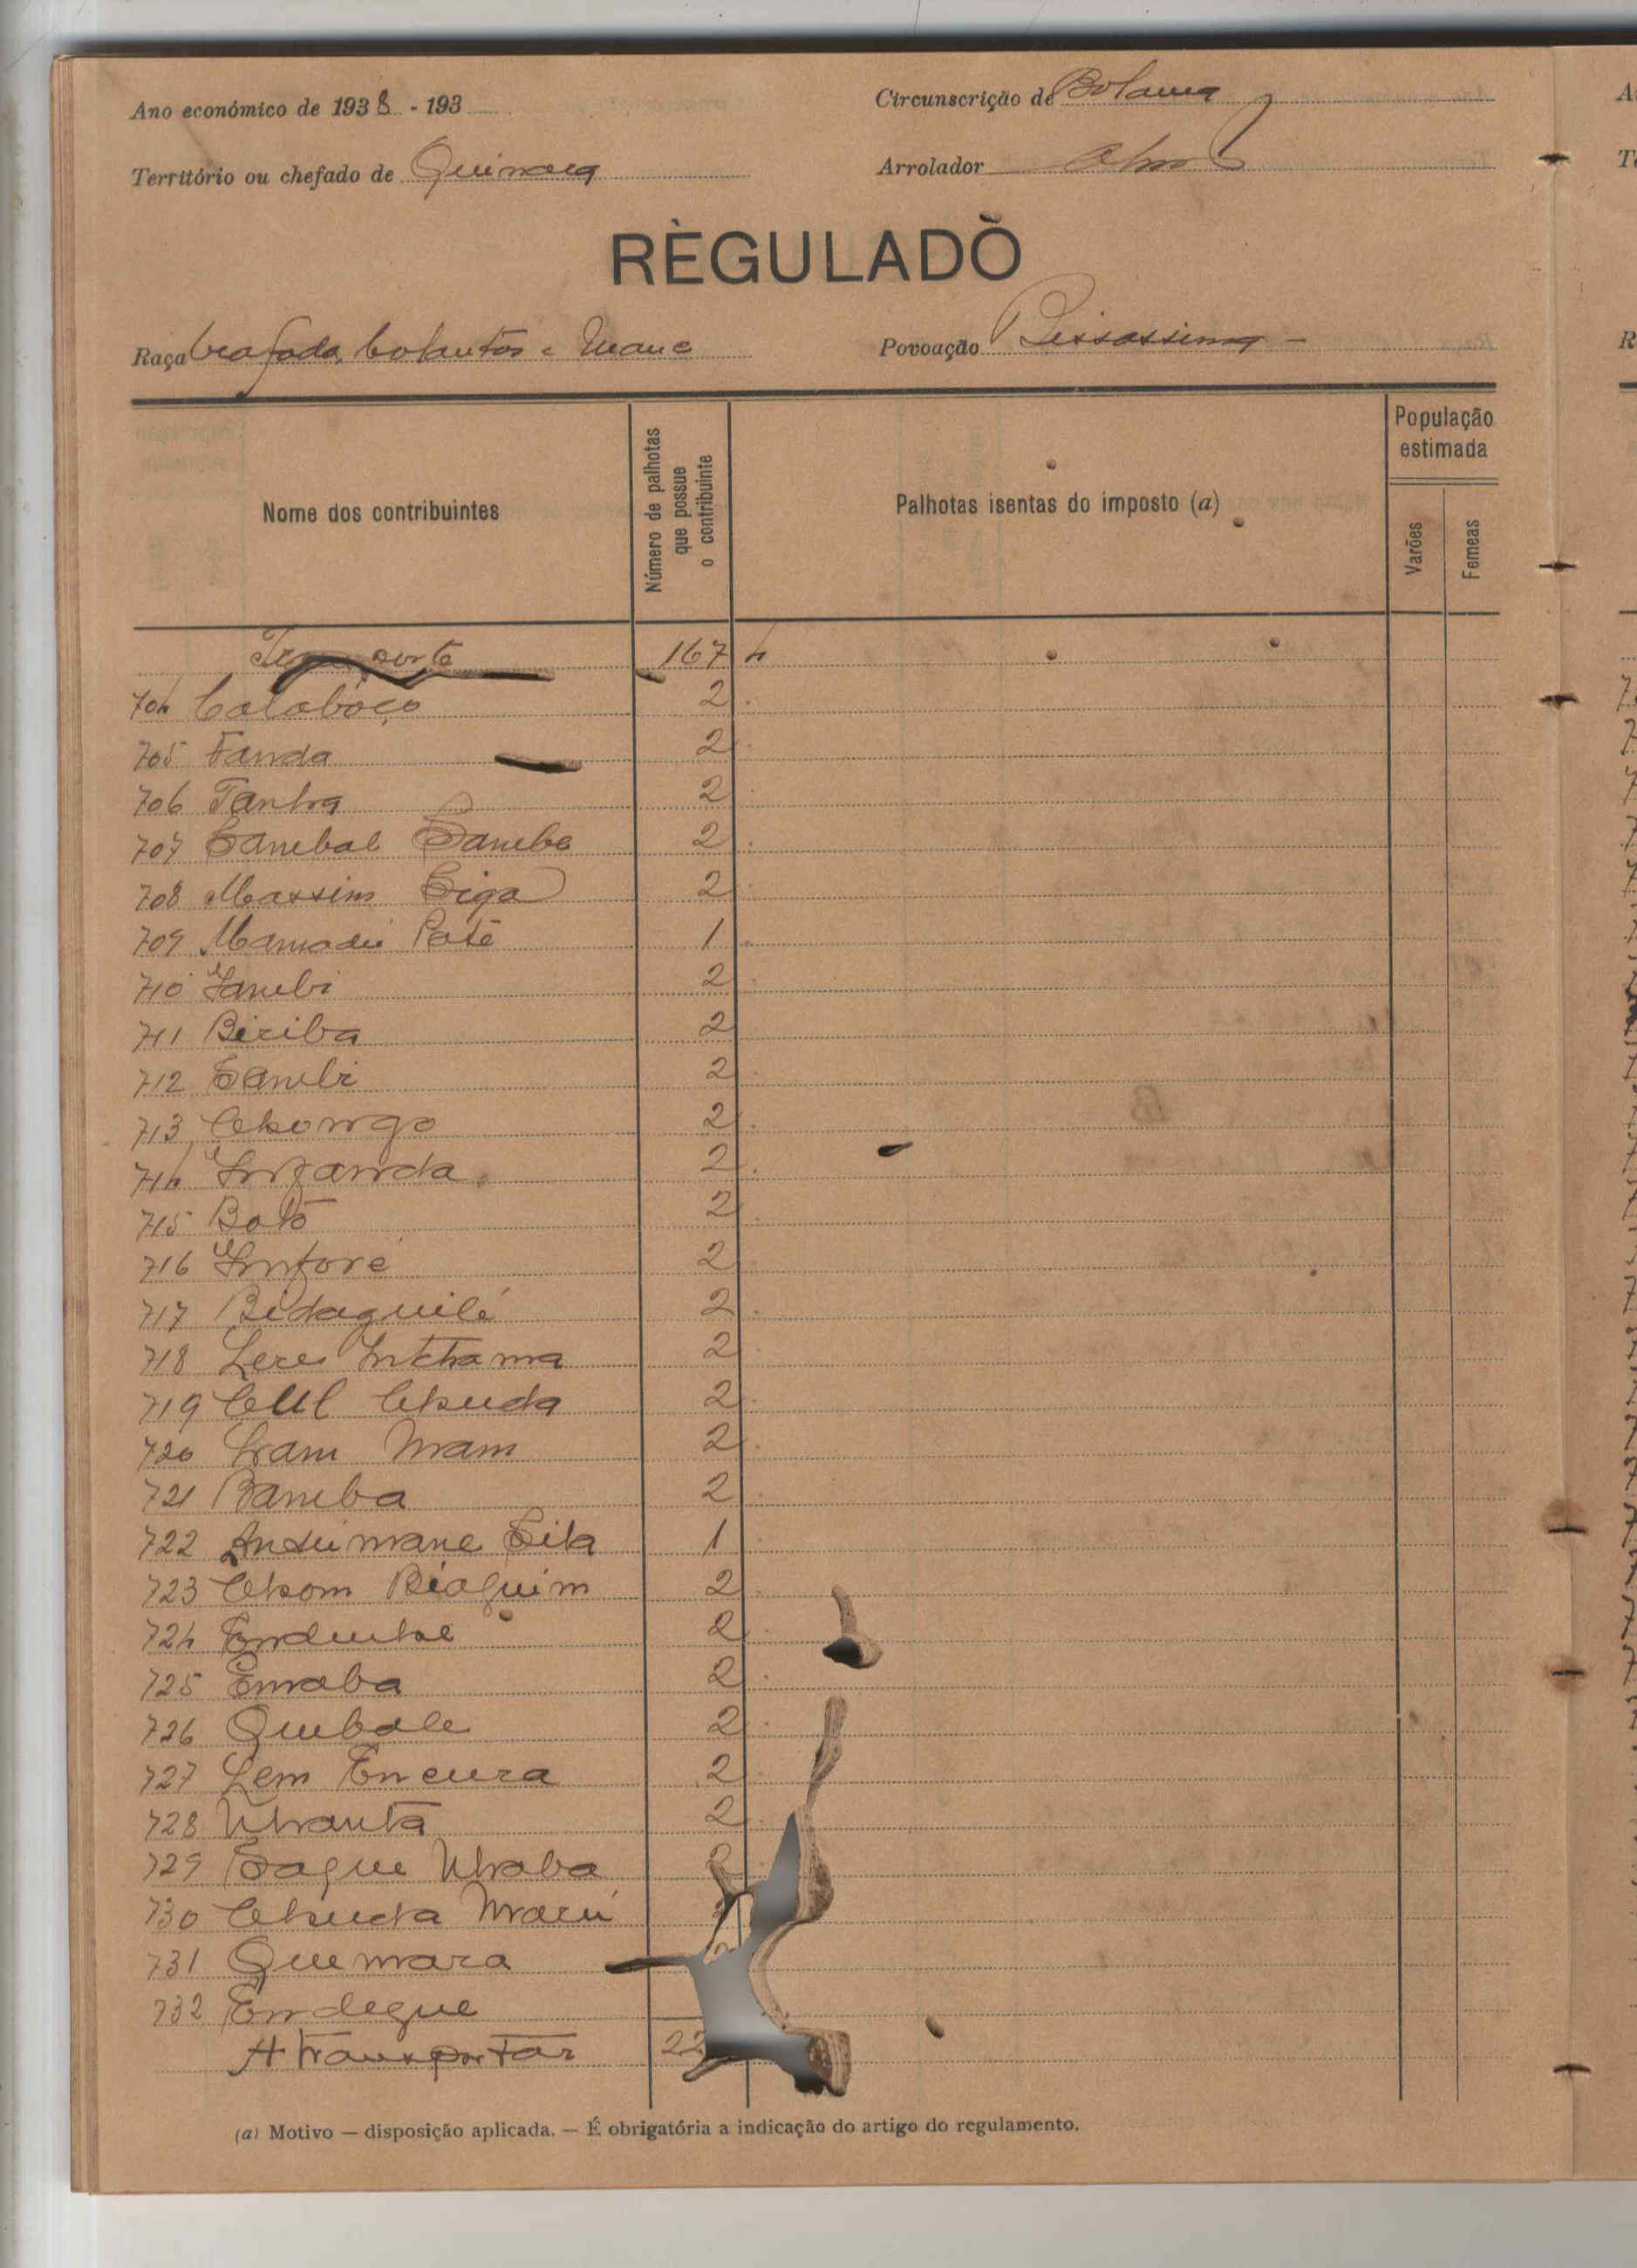 Ano económico de 1938 - 193
Circunscrição de Bolama
Território ou chefado de Quinara
Arrolador
REGULADO
Raça beafada, balantas e Mane
Povoação Bissassima
Nome dos contribuintes
Número de palhotas que possue o contribuinte
Palhotas isentas do imposto (a)
População estimada
Varões
Femeas
Transporte 167
704 Calaboço 2
705 Fanda 2
706 Tanha 2
707 Sambal Samba 2
708 Massim Siga 2
709 Mamadú Paté 1
710 Iambi 2
711 Biriba 2
712 Sambi 2
713 Chongo 2
714 Infanda 2
715 Botó 2
716 Inforé 2
717 Bidaguilé 2
718 Lere Intchama 2
719 2
720 2
721 Bamba 2
722 Ansumane Sila 1
723 Biaguim 2
724 2
725 Emaba 2
726 Quebale 2
727 Lem Encura 2
728 2
729 Sague
730
731 Quemara
732 Endegue
A transportar 22
(a) Motivo — disposição aplicada. — É obrigatória a indicação do artigo do regulamento.